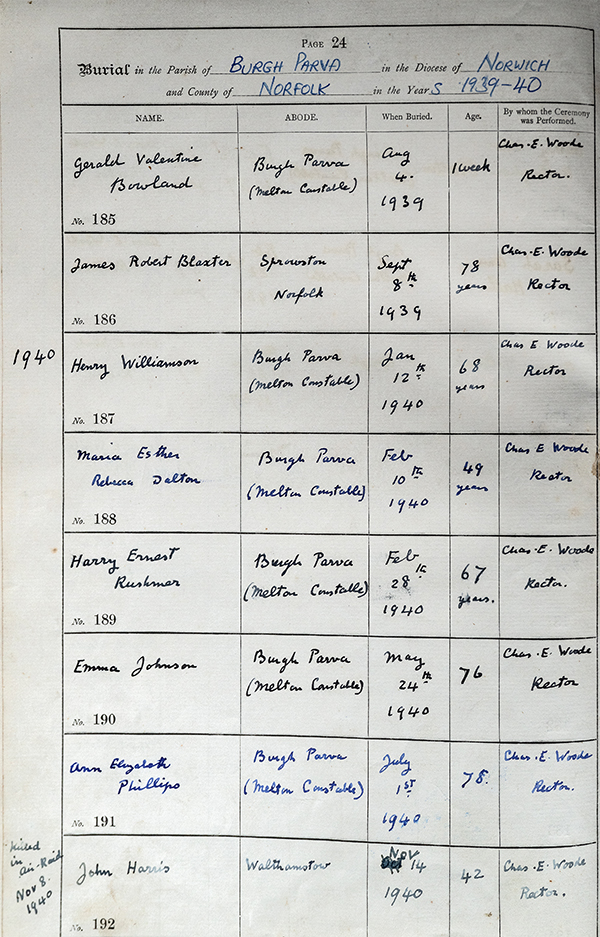 PAGE 24
Burial in the Parish of BURGH PARVA in the Diocese of NORWICH
and County of NORFOLK in the Years 1939-40
NAME. ABODE. When Buried. Age. By whom the Ceremony was Performed.
Gerald Valentine Bowland
No. 185
Burgh Parva
(Melton Constable)
Aug
4.
1939
1 week
Chas. E. Woode
Rector.
James Robert Blaxter
No. 186
Sprowston
Norfolk
Sept
8th
1939
78
years
Chas. E. Woode
Rector
1940
Henry Williamson
No. 187
Burgh Parva
(Melton Constable)
Jan
12th
1940
68
years
Chas E Woode
Rector
Maria Esther
Rebecca Dalton
No. 188
Burgh Parva
(Melton Constable)
Feb
10th
1940
49
years
Chas E Woode
Rector
Harry Ernest
Rushmer
No. 189
Burgh Parva
(Melton Constable)
Feb
28th
1940
67
years.
Chas. E. Woode
Rector.
Emma Johnson
No. 190
Burgh Parva
(Melton Constable)
May
24th
1940
76
Chas. E. Woode
Rector
Ann Elizabeth
Phillipo
No. 191
Burgh Parva
(Melton Constable)
July
1st
1940
78.
Chas. E. Woode
Rector.
Killed
in
Air-Raid
Nov 8.
1940
John Harris
No. 192
Walthamstow
Nov 14
1940
42
Chas. E. Woode
Rector.